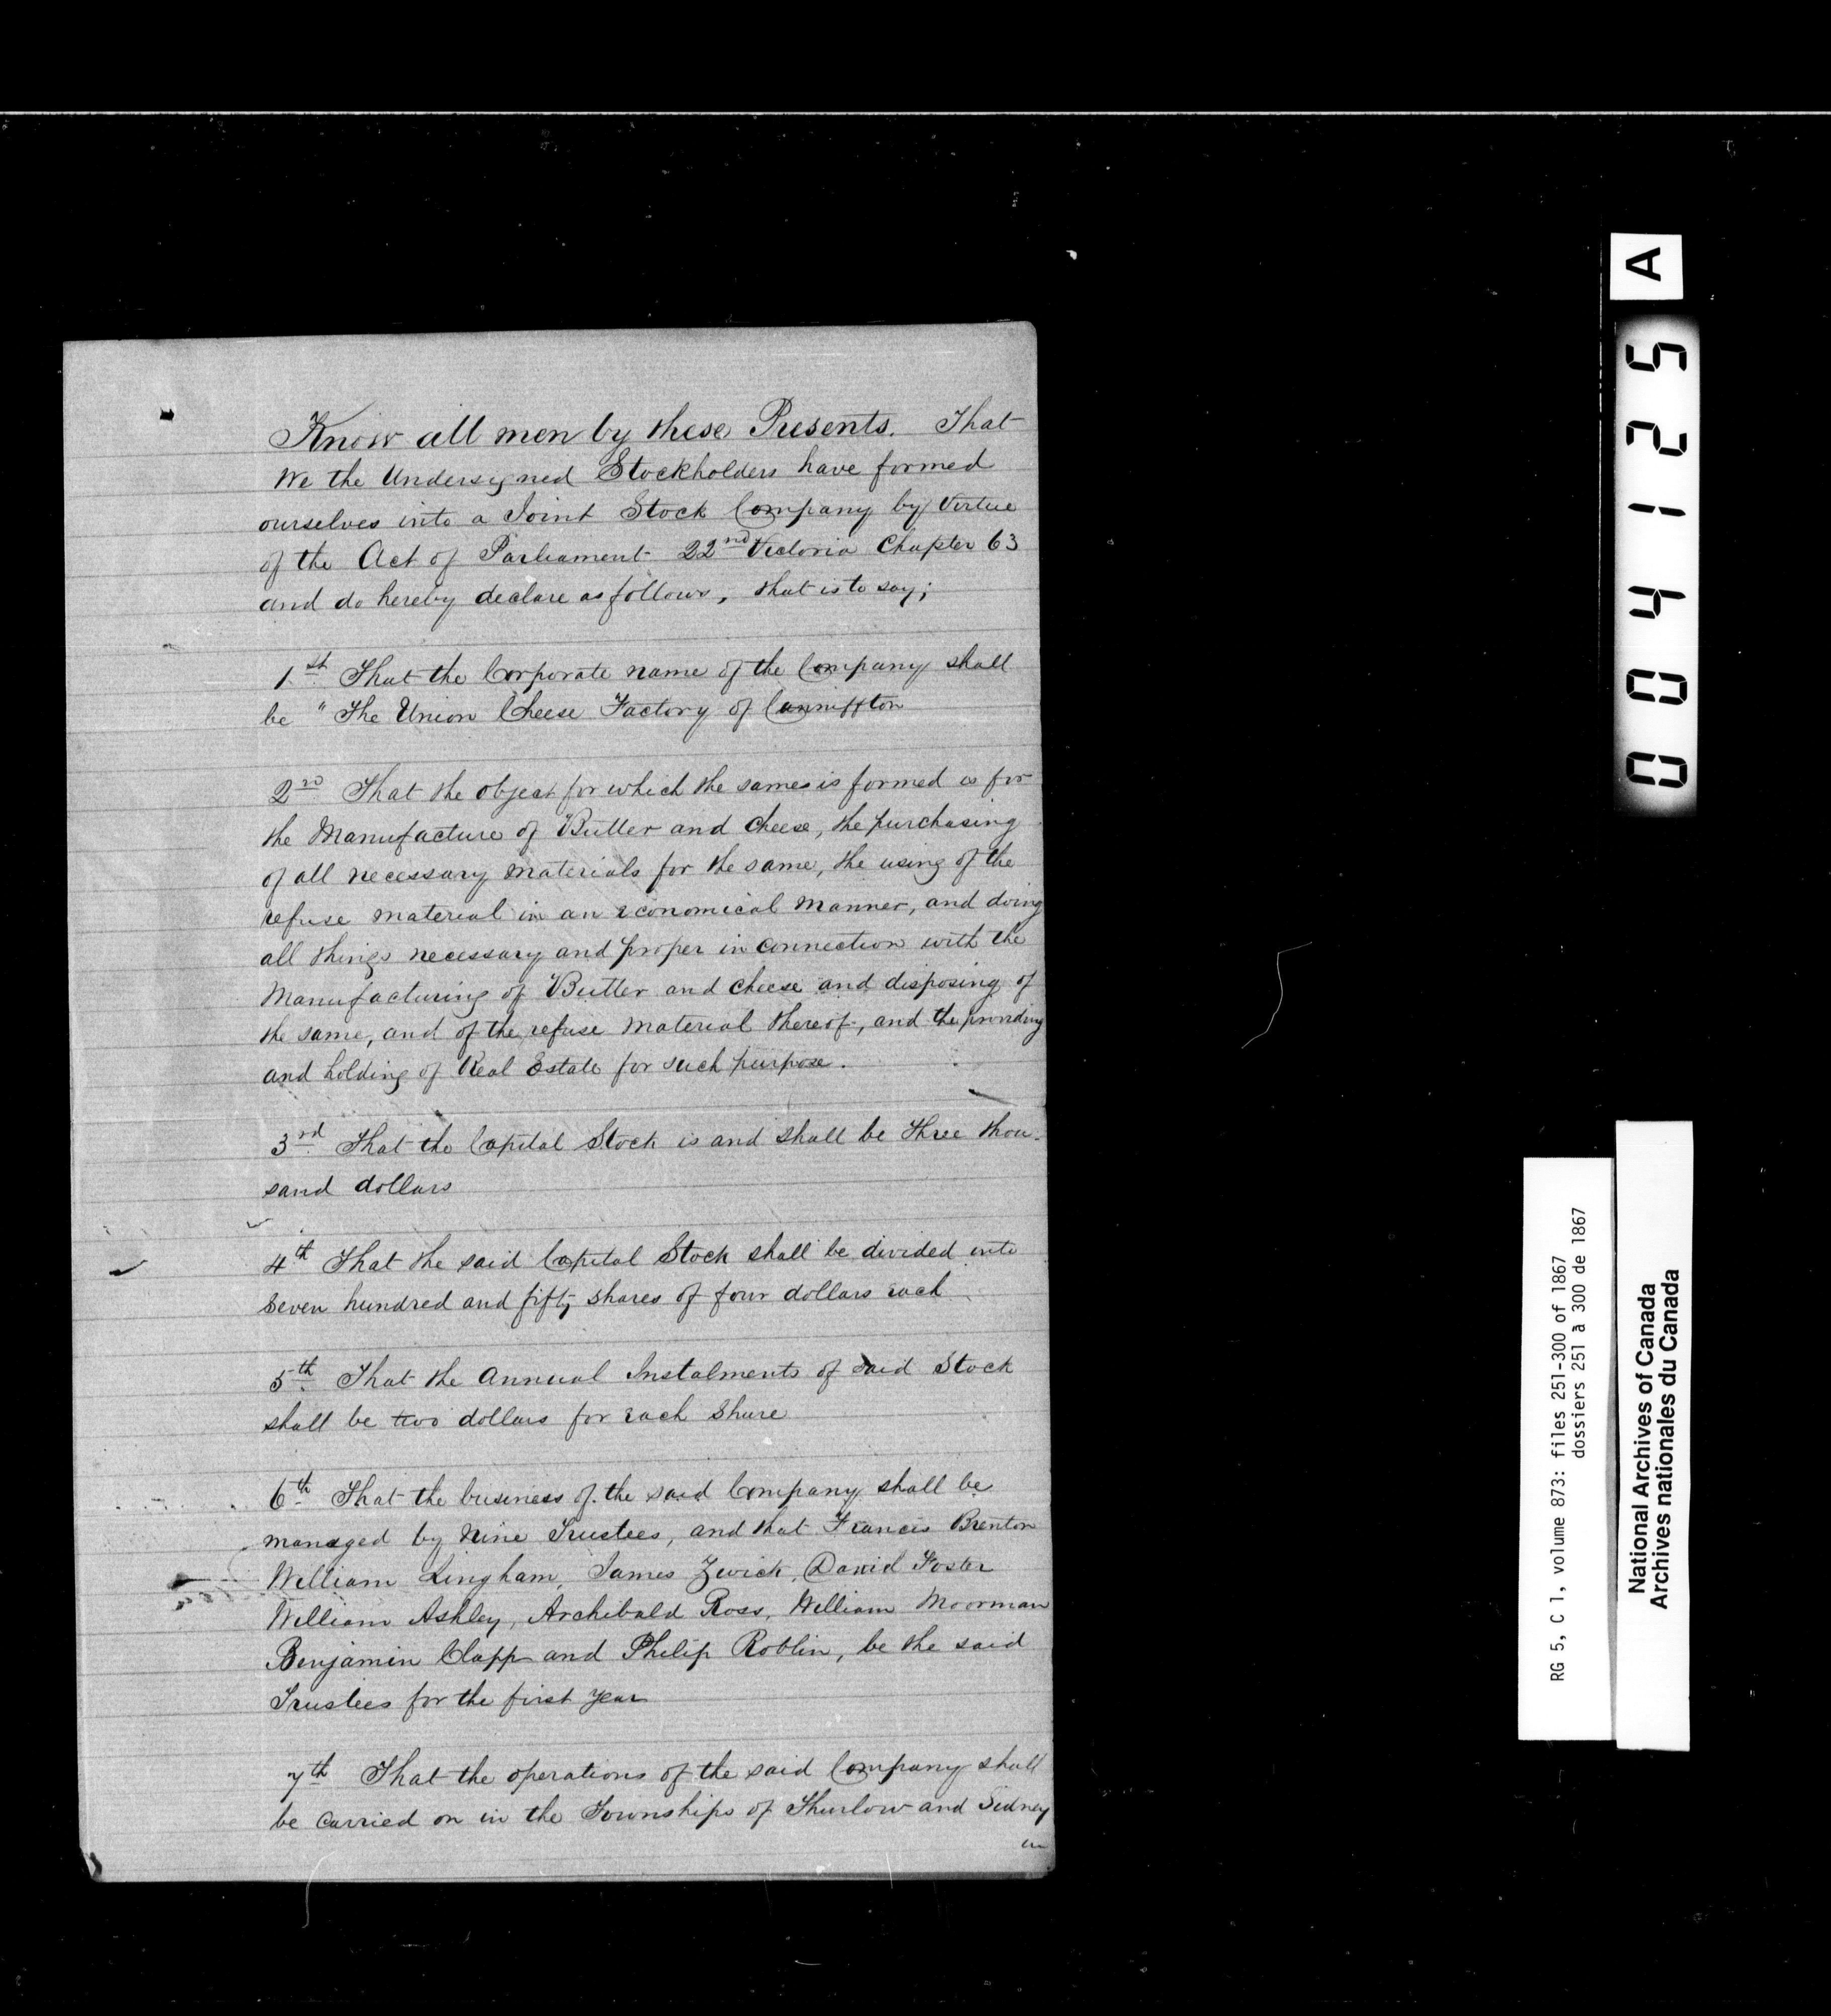 Know all men by these Presents. That
We the Undersigned Stockholders have formed
ourselves into a Joint Stock Company by Virtue
of the Act of Parliament 22nd Victoria Chapter 63
and do hereby declare as follows, that is to say;
1st That the Corporate name of the Company shall
be "The Union Cheese Factory of Canniffton
2nd That the object for which the same is formed is for
the Manufacture of Butter and Cheese, the purchasing
of all necessary materials for the same, the using of the
refuse material in an economical manner, and doing
all things necessary and proper in connection with the
Manufacturing of Butter and cheese and disposing of
the same, and of the refuse material thereof, and the providing
and holding of Real Estate for such purpose.
3rd That the Capital Stock is and shall be three thou-
sand dollars
4th That the said Capital Stock shall be divided into
Seven hundred and fifty shares of four dollars each
5th That the Annual Instalments of said Stock
shall be two dollars for each share
6th That the business of the said Company shall be
managed by Nine Trustees, and that Francis Brenton
William Lingham, James Zwick, David Foster
William Ashley, Archibald Ross, William Moorman
Benjamin Clapp and Philip Roblin, be the said
Trustees for the first year
7th That the operations of the said Company shall
be carried on in the Townships of Thurlow and Sidney
in
004125 A
RG 5, C 1, volume 873: files 251-300 of 1867
dossiers 251 à 300 de 1867
National Archives of Canada
Archives nationales du Canada